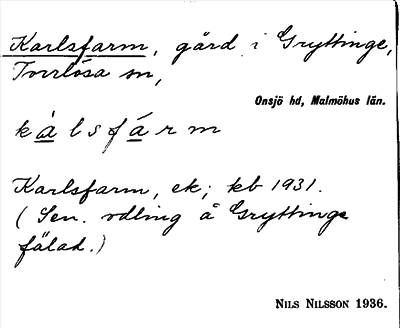 Karlsfarm, gård i Gryttinge,
Torrlösa sn,
Onsjö hd, Malmöhus län.
kàlsfárm
Karlsfarm, ek; kb 1931.
(Sen. odling å Gryttinge
fälad.)
NILS NILSSON 1936.